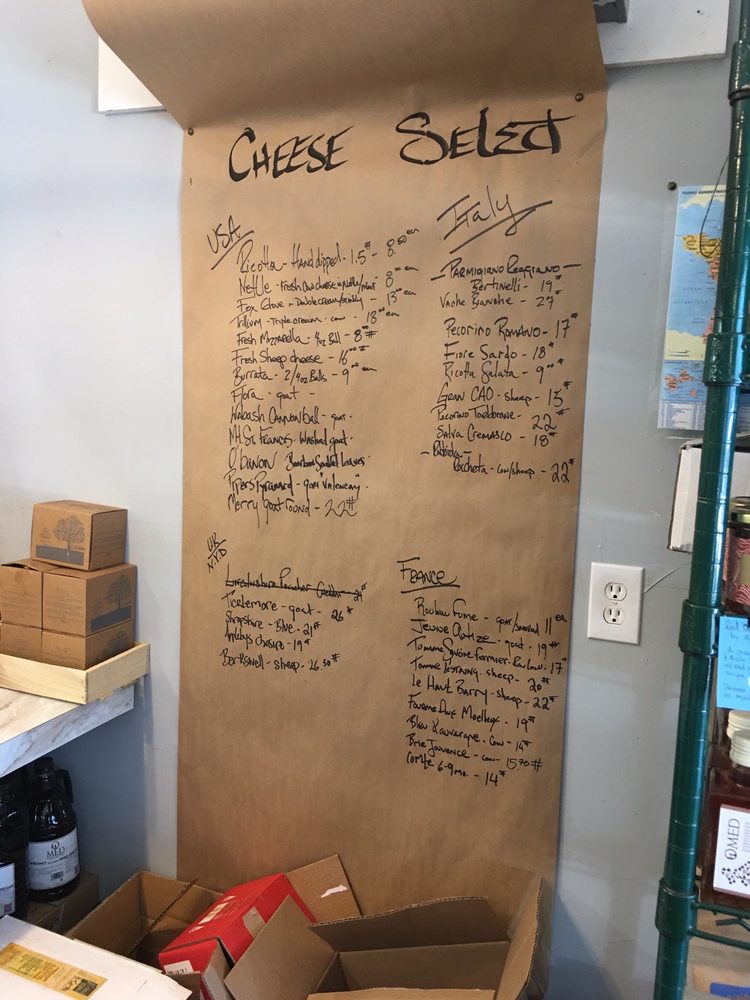 CHEESE SELECT
USA
Ricotta - Hand dipped - 1.5# - 8.50 ea
Nettle - Fresh Cow cheese w/nettle/mint 8.00 ea
Fox Glove - Double cream 13.00 ea
Trillium - Triple cream - cow - 13.00 ea
Fresh Mozzarella 4oz Ball - 8.00 #
Fresh Sheep cheese - 16.00 #
Burrata - 2/4oz Balls - 9.00 ea
Flora - goat -
Wabash Cannonball - goat -
Mt. St. Francis - Washed goat -
O'Banon - Bourbon Soaked leaves -
Pipers Pyramid - goat "Valencay"
Merry goat round - 22#
UK
Lincolnshire Poacher 21#
Ticklemore - goat - 26#
Shropshire - Blue - 21#
Applebys cheshire - 19#
Berkswell - sheep - 26.50#
Italy
PARMIGIANO Reggiano -
Bertinelli - 19#
Vache Bianche - 27#
Pecorino ROMANO - 17#
Fiore Sardo - 18#
Ricotta Salata - 9.00 #
Gran CAO - sheep - 15#
Pecorino - 22#
Salva Cremasco - 18#
Rocheta - cow/sheep - 22#
FRANCE
Rouleau Fume - goat/smoked 11 ea
Jeune - goat - 19#
Tomme Savoie Fermier - 17#
Tomme - sheep - 20#
Le Haut Barry - sheep - 22#
Fourme - 19#
Bleu d'auvergne - cow - 14#
Brie Jouvence - cow - 15.70 #
Comte 6-9mo. - 14#
O MED
CABERNET
O MED